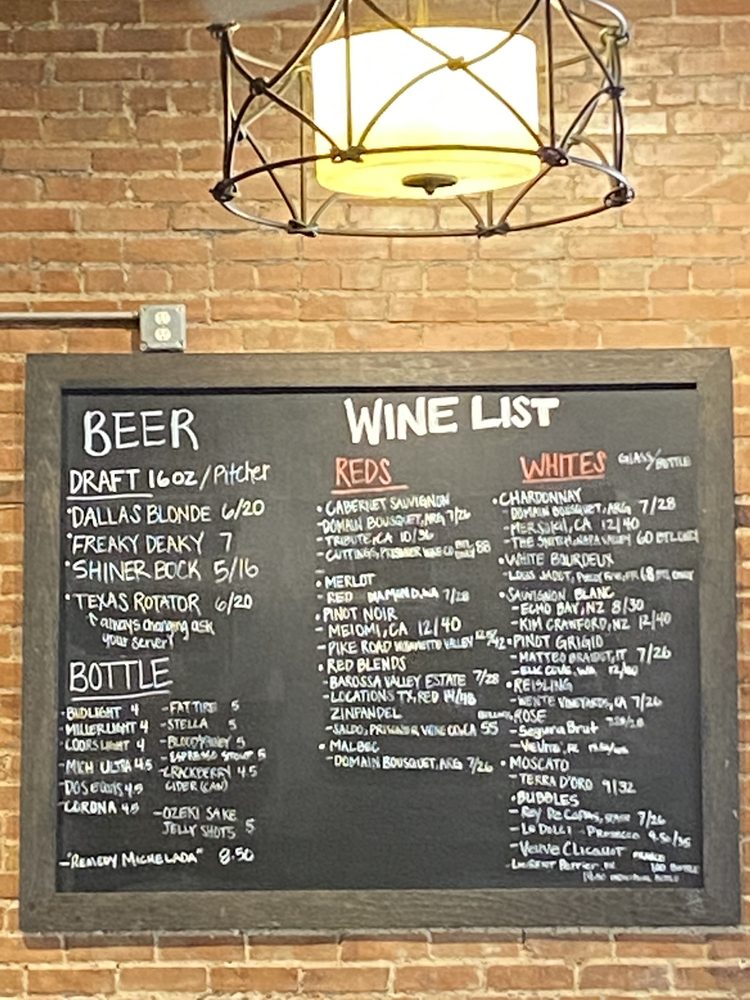 BEER
DRAFT 16oz/Pitcher
• DALLAS BLONDE 6/20
• FREAKY DEAKY 7
• SHINER BOCK 5/16
• TEXAS ROTATOR 6/20
↑ always changing ask
your server!
BOTTLE
- BUDLIGHT 4
- MILLER LIGHT 4
- COORS LIGHT 4
- MICH ULTRA 4.5
- DOS EQUIS 4.5
- CORONA 4.5
- FAT TIRE 5
- STELLA 5
- BLOOD & HONEY 5
- ESPRESSO STOUT 5
- CRACKBERRY 4.5
CIDER (CAN)
- OZEKI SAKE
JELLY SHOTS 5
- "REMEDY MICHELADA" 8.50
WINE LIST
REDS
• CABERNET SAUVIGNON
- DOMAIN BOUSQUET, ARG 7/26
- TRIBUTE, CA 10/36
- CUTTINGS, PRISONER WINE CO 88
• MERLOT
- RED DIAMOND, WA 7/28
• PINOT NOIR
- MEIOMI, CA 12/40
- PIKE ROAD WILLAMETTE VALLEY
• RED BLENDS
- BAROSSA VALLEY ESTATE 7/28
- LOCATIONS TX, RED 14/48
ZINFANDEL
- SALDO, PRISONER WINE CO, CA 55
• MALBEC
- DOMAIN BOUSQUET, ARG 7/26
WHITES GLASS/BOTTLE
• CHARDONNAY
- DOMAIN BOUSQUET, ARG 7/28
- MER SOLEIL, CA 12/40
- THE SNITCH, NAPA VALLEY 60 BTL ONLY
• WHITE BOURDEUX
- LOUIS JADOT, FR 68 BTL ONLY
• SAUVIGNON BLANC
- ECHO BAY, NZ 8/30
- KIM CRAWFORD, NZ 12/40
• PINOT GRIGIO
- MATTEO BRAIDOT, IT 7/26
- ELK COVE, WA 12/40
• REISLING
- WENTE VINEYARDS, CA 7/26
ROSE
- Segura Brut
• MOSCATO
- TERRA D'ORO 9/32
• BUBBLES
- Rey De Copas, 7/26
- La Dolci - Prosecco 9.50/35
- Veuve Clicquot
- Laurent Perrier, 100 BOTTLE